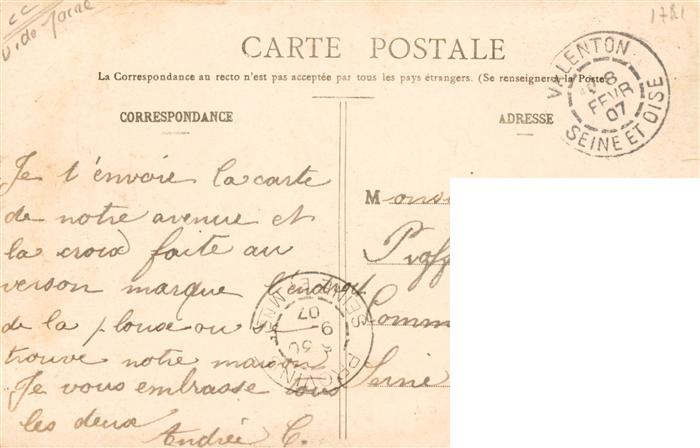 CC
V. de Marne
1781
CARTE POSTALE
La Correspondance au recto n'est pas acceptée par tous les pays étrangers. (Se renseigner à la Poste
CORRESPONDANCE
ADRESSE
VALENTON
8
FEVR
07
SEINE ET OISE
Je t'envoie la carte
de notre avenue et
la croix faite au
verson marque l'endroit
de la plouse ou se
trouve notre maison
Je vous embrasse tous
les deux
Andrée C.
Monsi
Comm
Seine
PROVINS
SEINE ET MNE
9
07